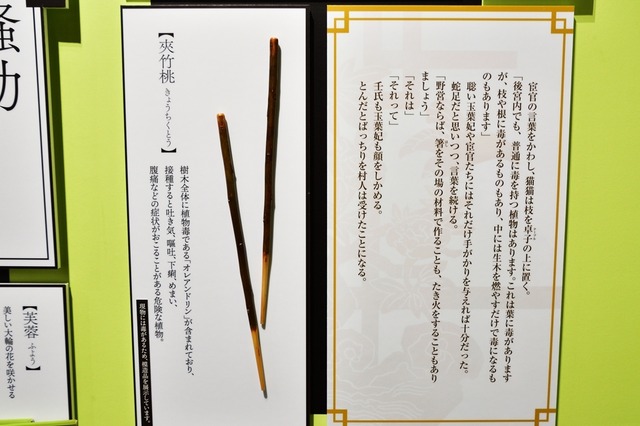 宦官の言葉をかわし、猫猫は枝を卓子の上に置く。
「後宮内でも、普通に毒を持つ植物はあります。これは葉に毒があります
が、枝や根に毒があるものもあり、中には生木を燃やすだけで毒になるも
のもあります」
聡い玉葉妃や宦官たちにはそれだけ手がかりを与えれば十分だった。
蛇足だと思いつつ、言葉を続ける。
「野営ならば、箸をその場の材料で作ることも、たき火をすることもあり
ましょう」
「それは」
「それって」
壬氏も玉葉妃も顔をしかめる。
とんだとばっちりを村人は受けたことになる。
【夾竹桃 きょうちくとう】
樹木全体に植物毒である「オレアンドリン」が含まれており、
接種すると吐き気、嘔吐、下痢、めまい、
腹痛などの症状がおこることがある危険な植物。
現物には毒があるため、模造品を展示しています。
騒動
【芙蓉 ふよう】
美しい大輪の花を咲かせる